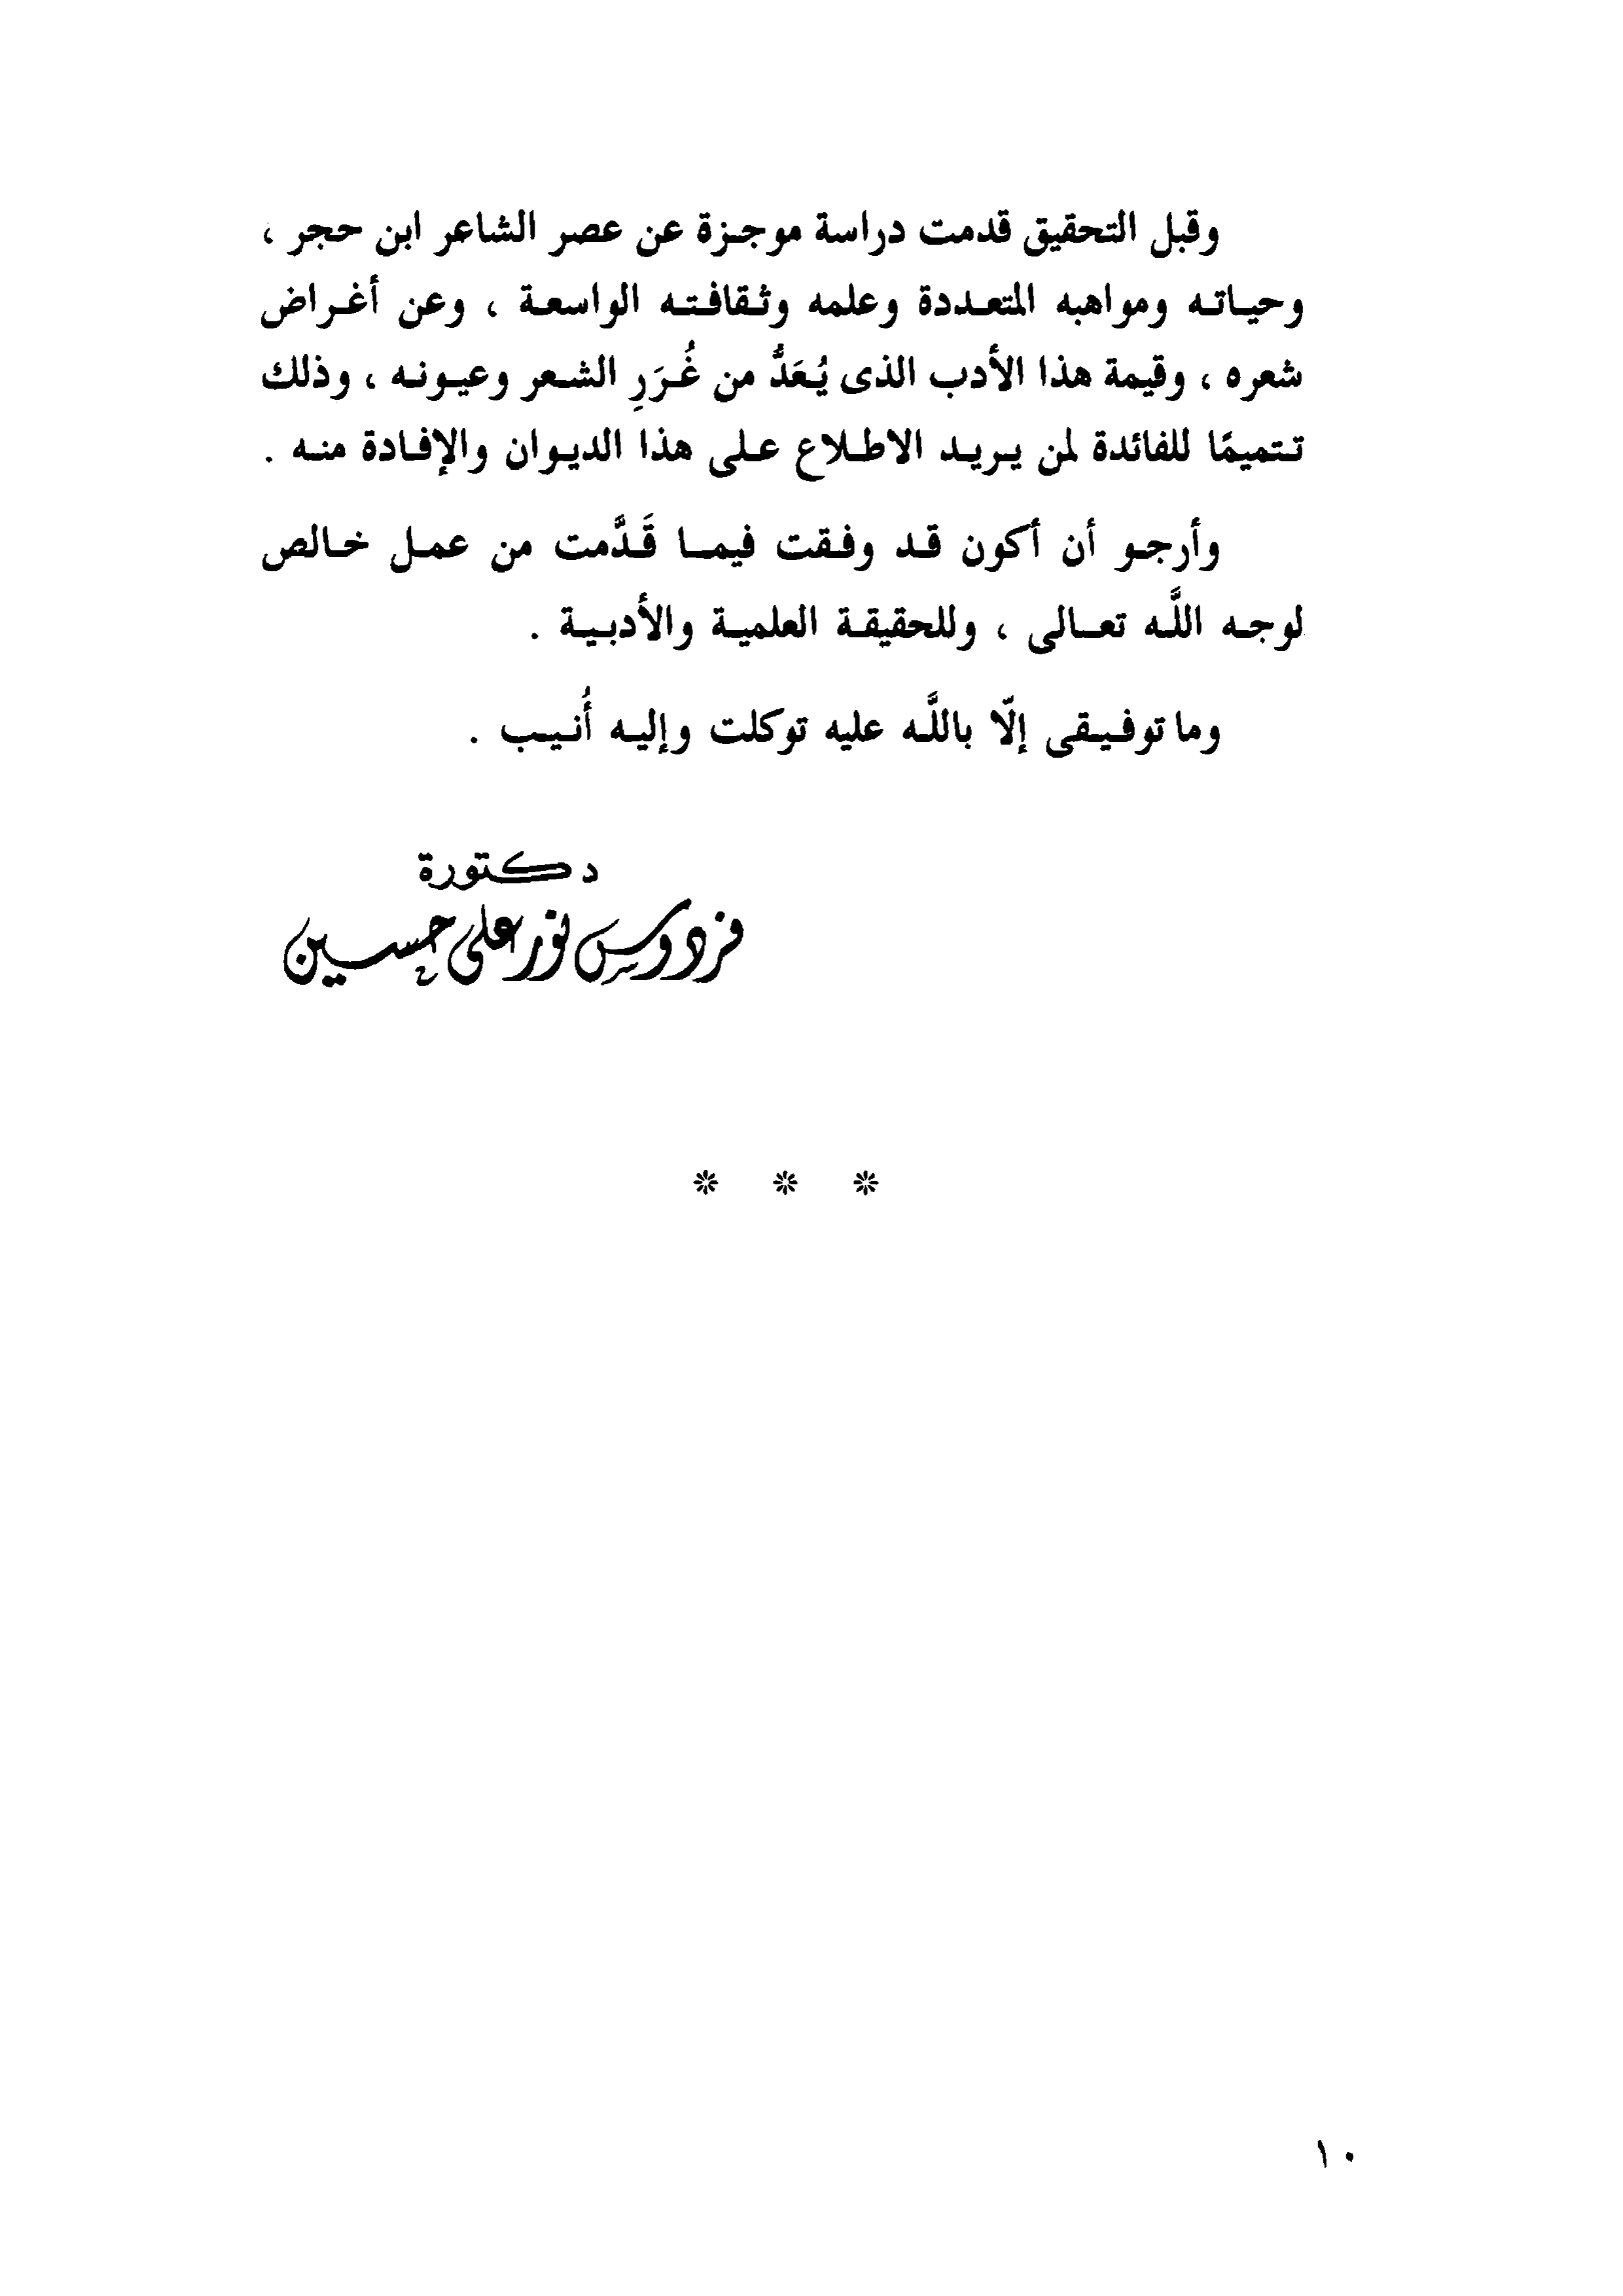 وقبل التحقيق قدمت دراسة موجزة عن عصر الشاعر ابن حجر ،
وحياته ومواهبه المتعددة وعلمه وثقافته الواسعة ، وعن أغراض
شعره ، وقيمة هذا الأدب الذى يُعَدُّ من غُرَرِ الشعر وعيونه ، وذلك
تتميمًا للفائدة لمن يريد الاطلاع على هذا الديوان والإفادة منه .
وأرجو أن أكون قد وفقت فيما قَدَّمت من عمل خالص
لوجه اللَّه تعالى ، وللحقيقة العلمية والأدبية .
وما توفيقى إلّا باللَّه عليه توكلت وإليه أُنيب .
دكتورة
فردوس نور على حسين
* * *
١٠